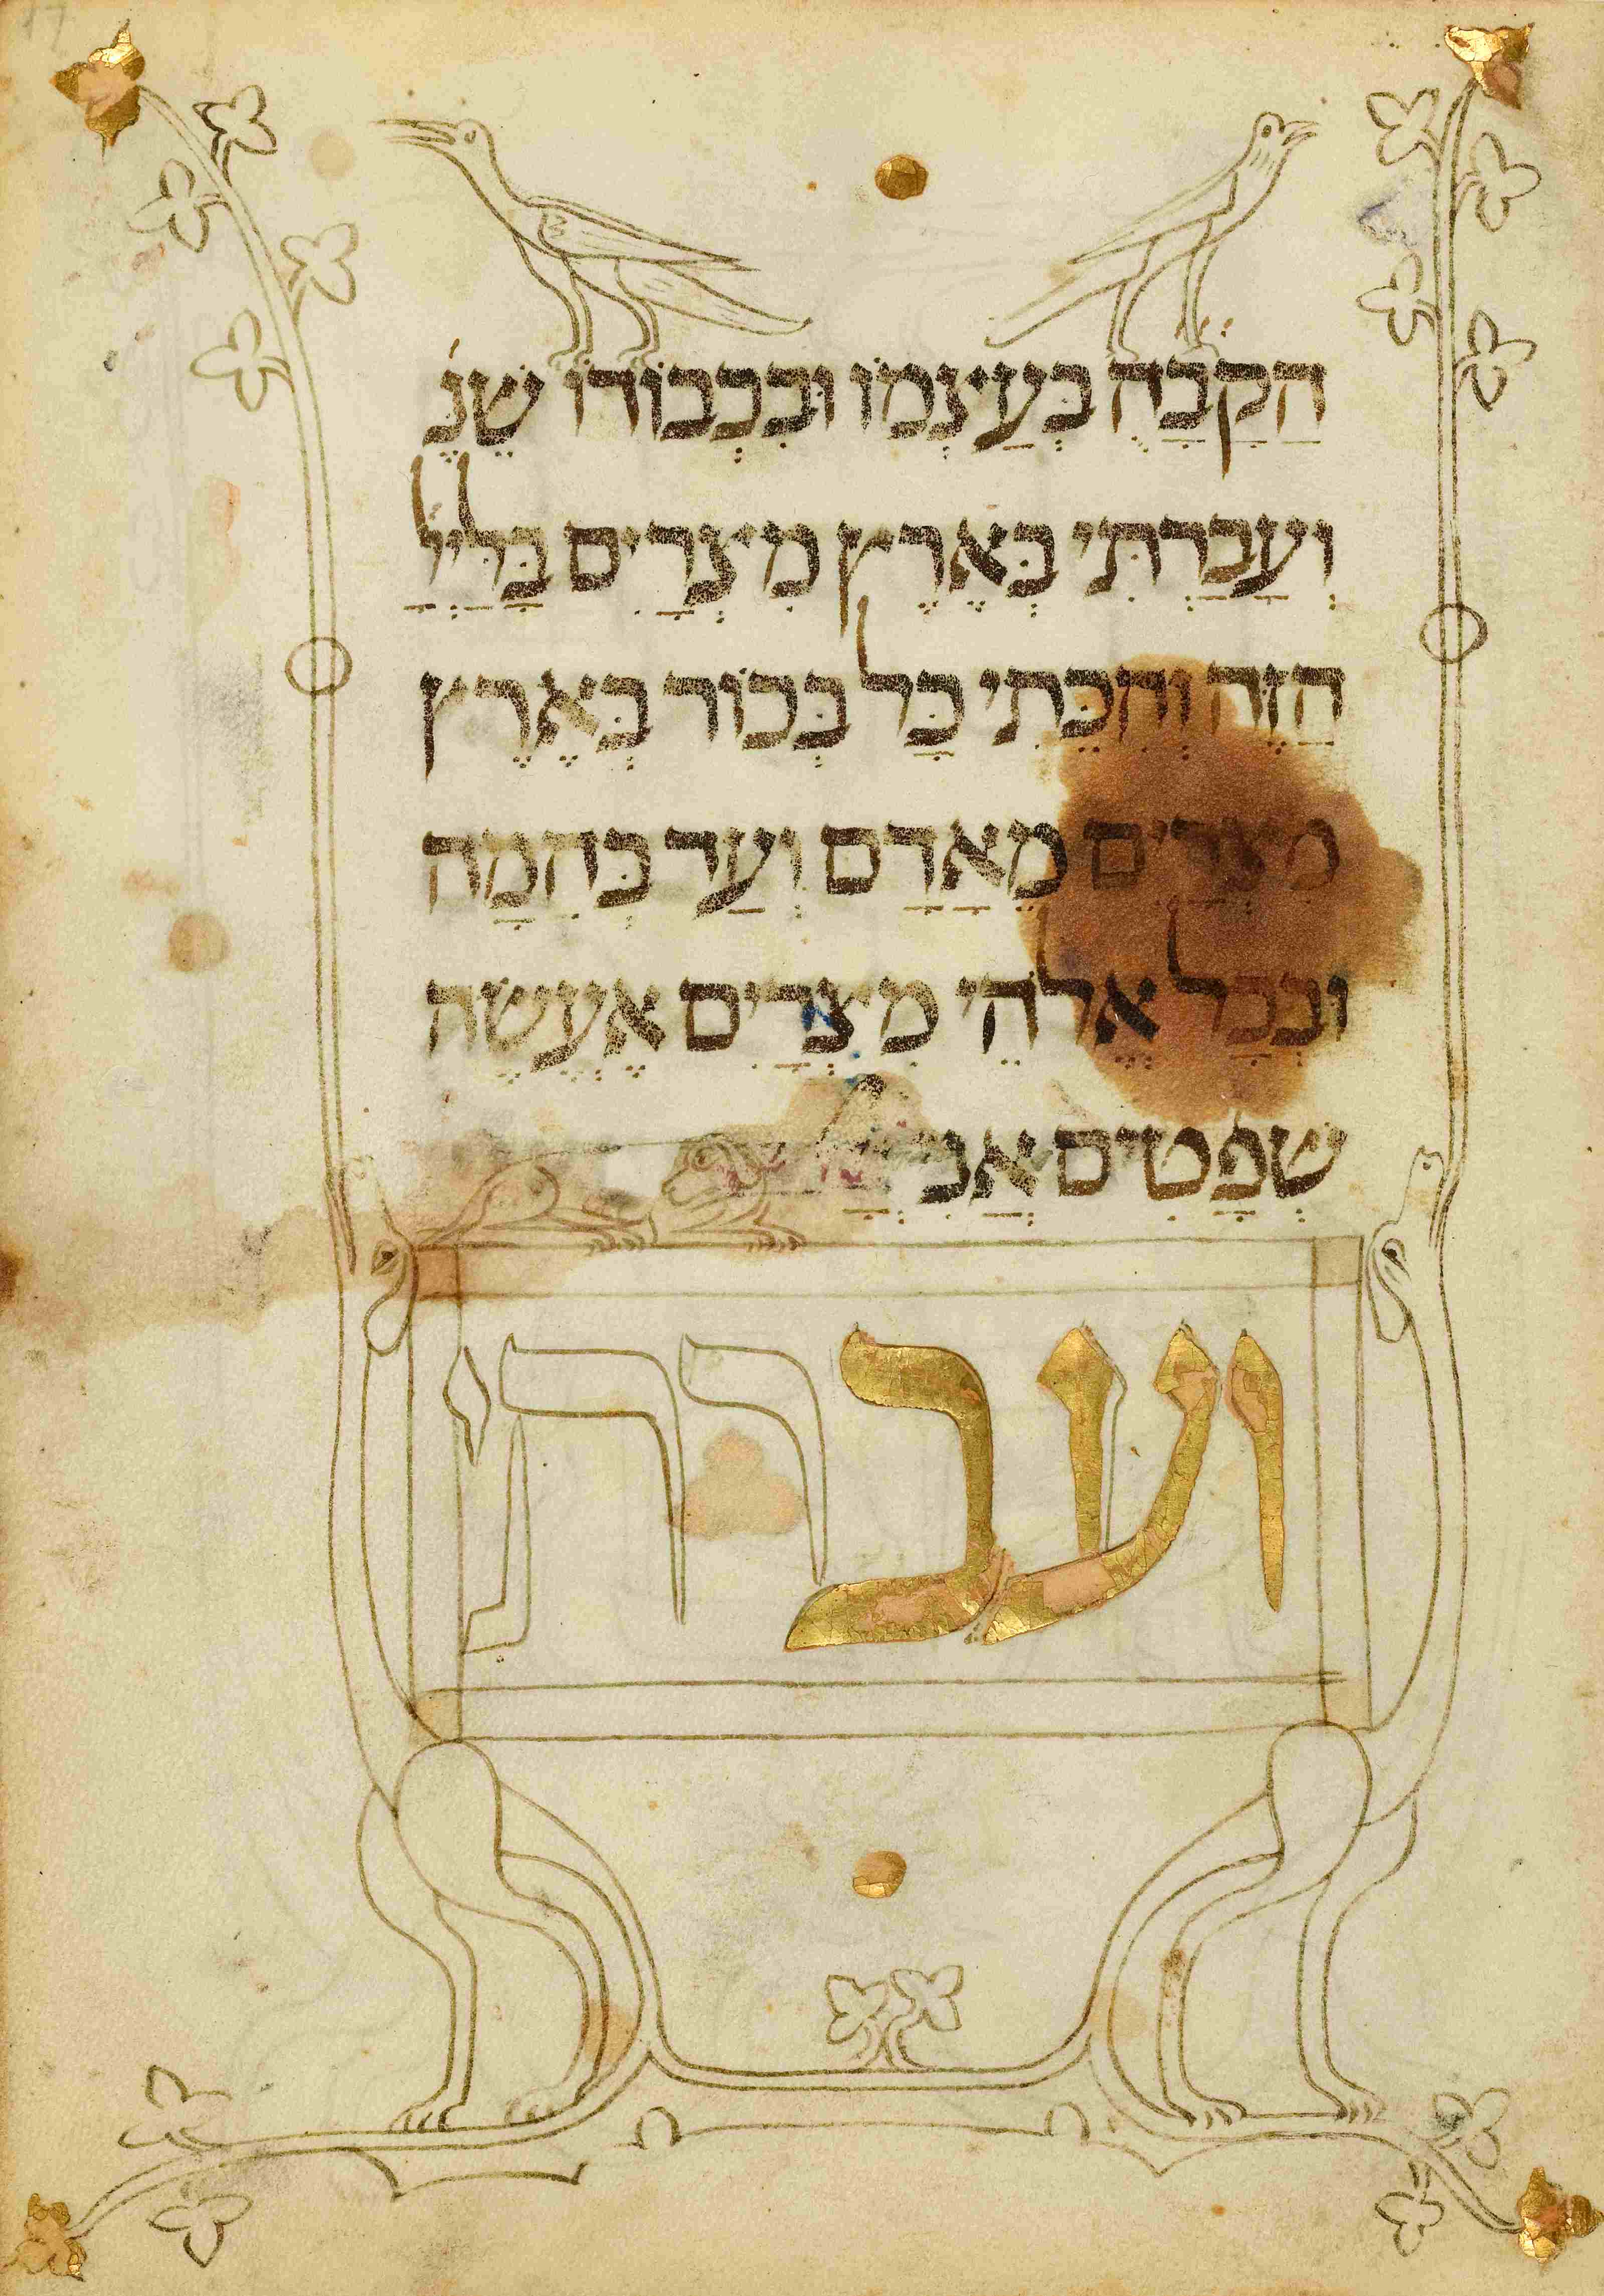 הַקָבָה בְּעַצְמוֹ וּבִכְבוֹדוֹ שֶׁנֶּ׳
וְעָבַרְתִּי בְּאֶרֶץ מִצְרַיִם בַּלַּיְלָ
הַזֶּה וְהִכֵּתִי כָּל בְּכוֹר בְּאֶרֶץ
מִצְרַיִם מֵאָדָם וְעַד בְּהֵמָה
וּבְכָל אֱלֹהֵי מִצְרַיִם אֶעֱשֶׂה
שְׁפָטִים אֲנִי
ועברתי